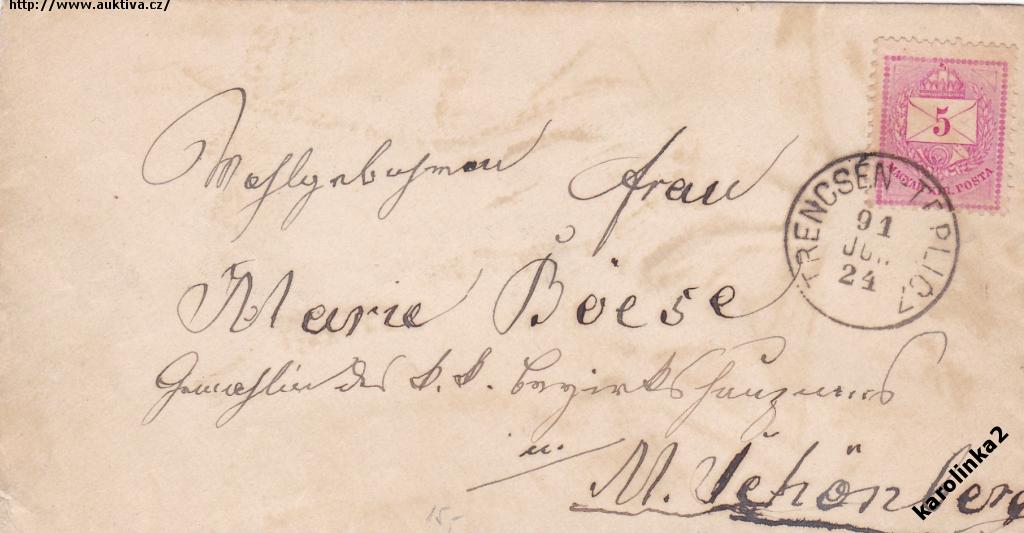 http://www.auktiva.cz/
5
MAGYAR KIR. POSTA
TRENCSÉN TEPLICZ
91
JUN
24
Wohlgebohrnen Frau
Marie Böese
Gemahlin des k. k. Bezirkshauptmanns
in
M. Schönberg
15.-
karolinka2